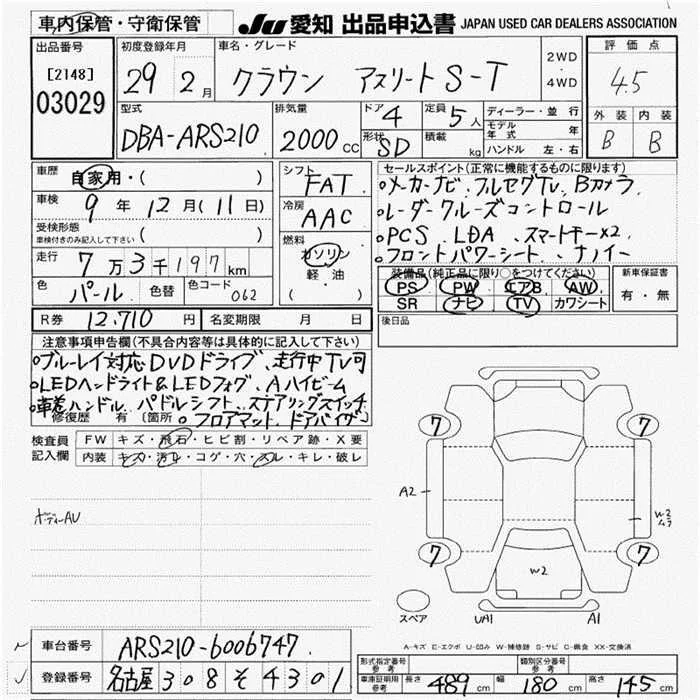 車内保管・守衛保管
JU 愛知 出品申込書 JAPAN USED CAR DEALERS ASSOCIATION
出品番号
[2148]
03029
初度登録年月
29 2月
車名・グレード
クラウン アスリートS-T
2WD
・
4WD
評価点
4.5
外装 内装
B B
型式
DBA-ARS210
排気量
2000cc
ドア 4
形状 SD
定員 5人
積載 kg
ディーラー・並行
モデル年式 年
ハンドル 左・右
車歴
自家用・( )
車検
9年 12月(11日)
受検形態
車検付きのみ記入して下さい ( )
走行
7万3千197km
色 パール 色替 色コード 062
シフト
FAT
冷房
AAC
燃料
ガソリン
軽油
( )
セールスポイント(正常に機能するものに限ります)
。メーカーナビ、フルセグTV、Bカメラ
。レーダークルーズコントロール
。PCS、LDA、スマートキー×2
。フロントパワーシート、ナノイー
装備品(純正品に限り○をつけてください)
PS PW エアB AW
SR ナビ TV カワシート
新車保証書
有・無
R券 12,710円 名変期限 月 日
後日品
注意事項申告欄(不具合内容等は具体的に記入して下さい)
。ブルーレイ対応DVDドライブ、走行中TV可
。LEDヘッドライト&LEDフォグ、Aハイビーム
。革巻ハンドル、パドルシフト、ステアリングスイッチ
。フロアマット、ドアバイザー
修復歴 有 〔箇所
検査員記入欄
FW キズ・飛石・ヒビ割・リペア跡・X要
内装 キズ・汚れ・コゲ・穴・スレ・キレ・破レ
ボディーAU
7
7
A2
W2
7
7
W2
スペア
UA1
A1
A-キズ E-エクボ U-凹み W-補修跡 S-サビ C-腐食 XX-交換済
車台番号 ARS210-6006747
登録番号 名古屋 308 そ 4301
形式指定番号 参考
類別区分番号 参考
車庫証明用 参考 長さ 489cm 幅 180cm 高さ 145cm